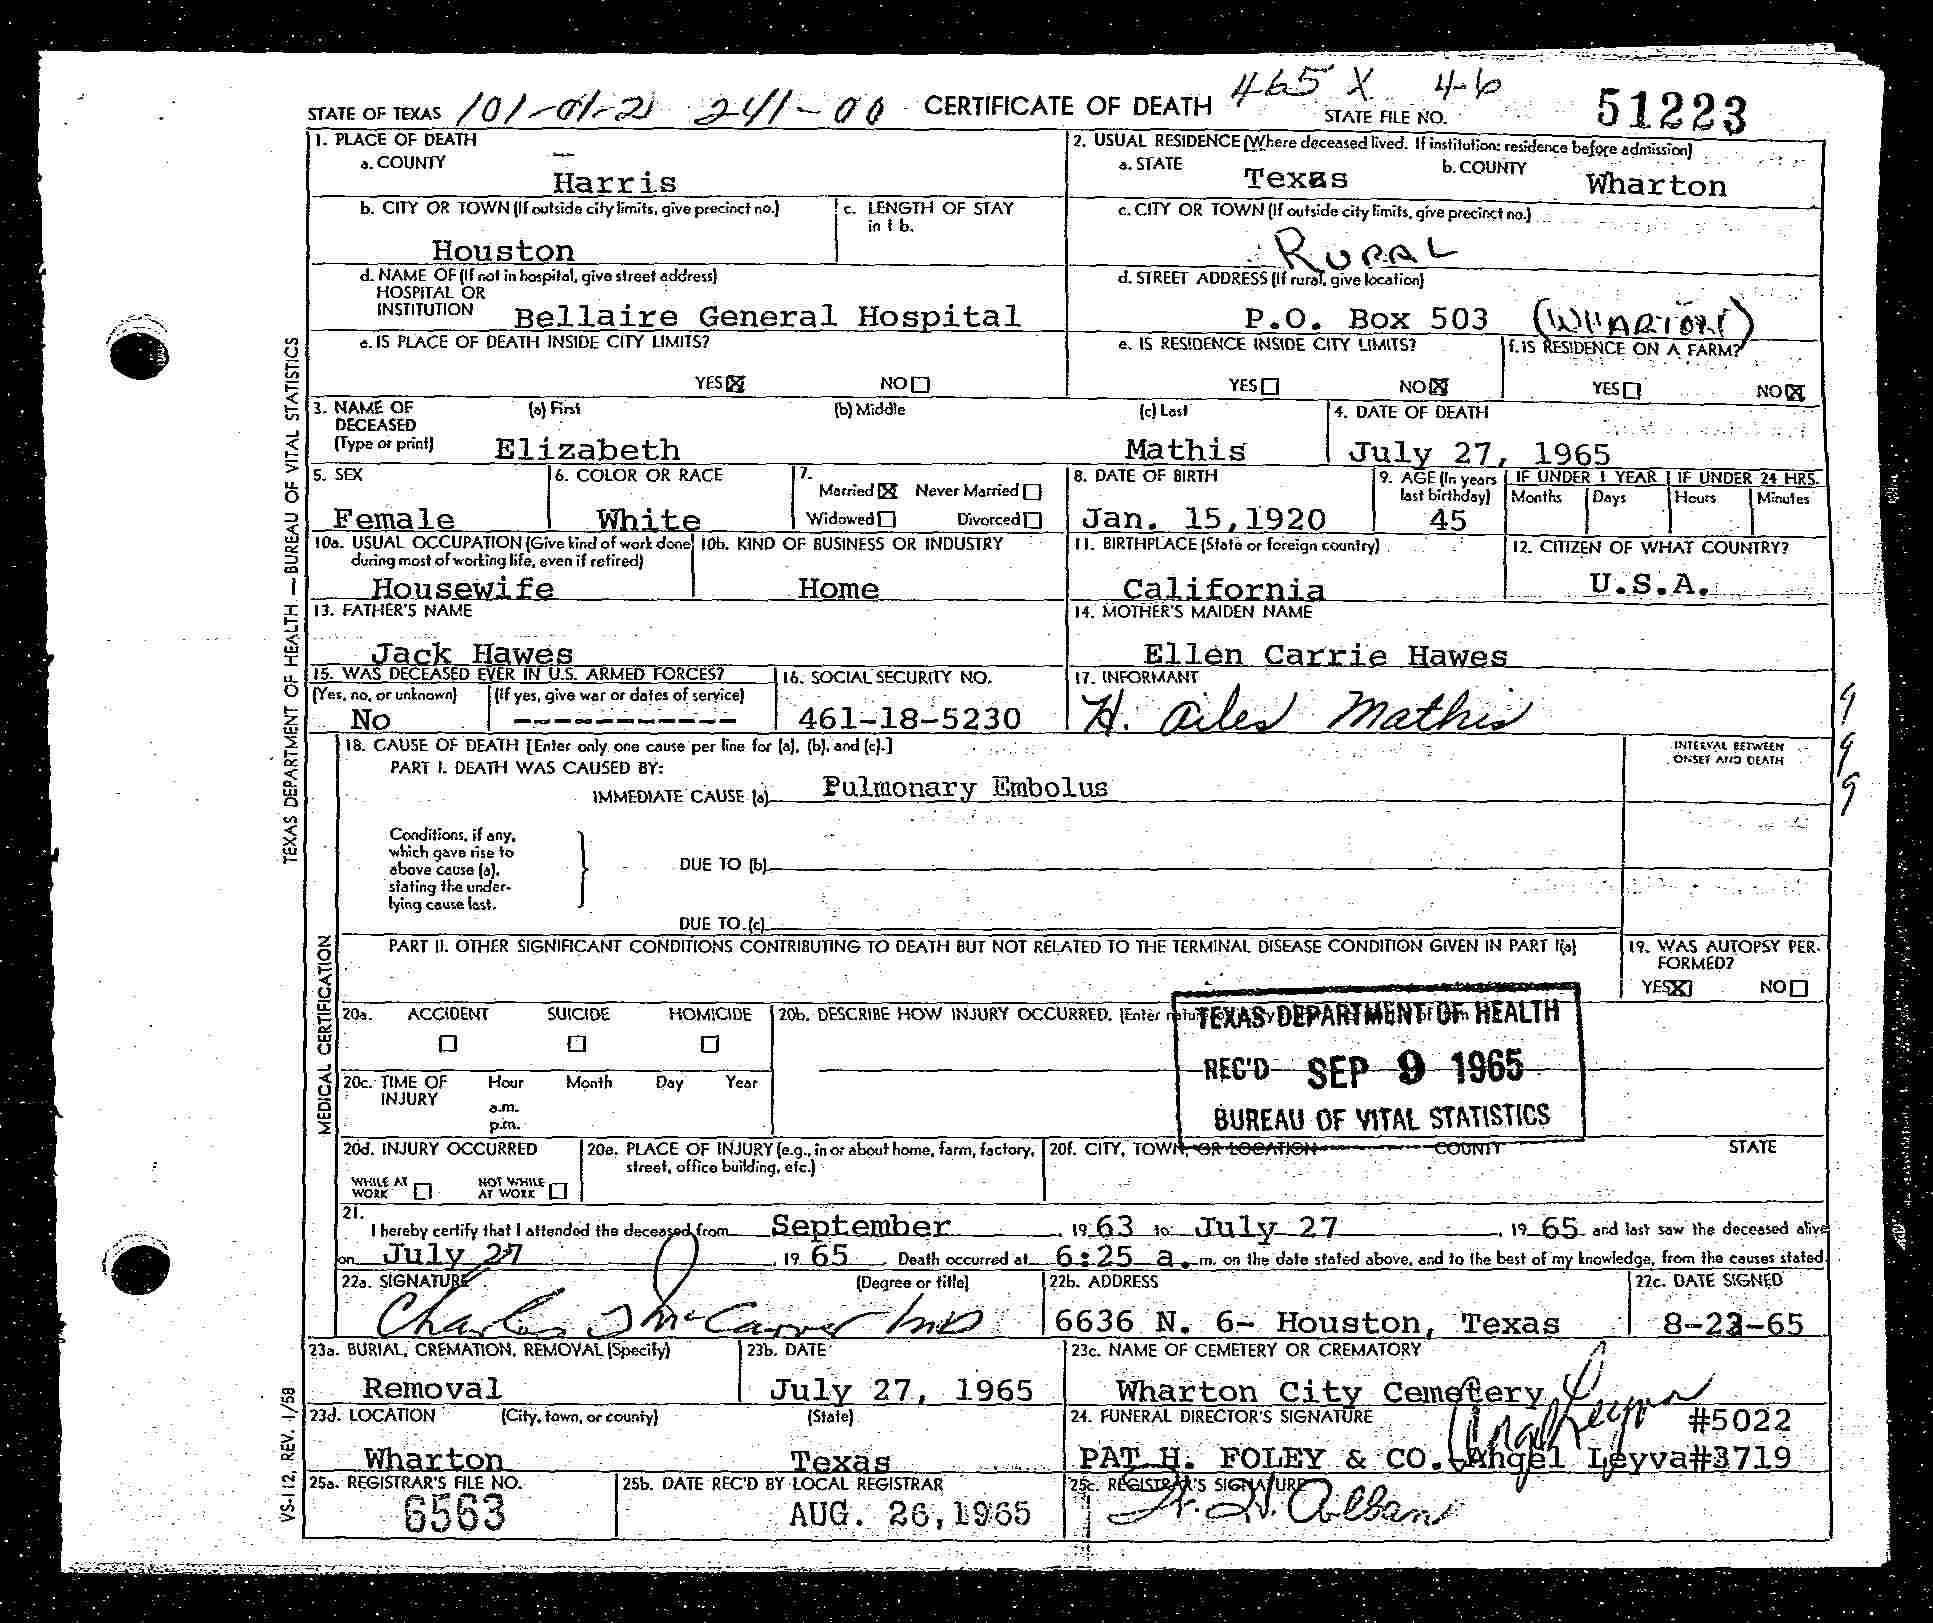 STATE OF TEXAS 101-01-21 241-00 CERTIFICATE OF DEATH 465 X 4-6 STATE FILE NO. 51223
1. PLACE OF DEATH
a. COUNTY
Harris
2. USUAL RESIDENCE (Where deceased lived. If institution: residence before admission)
a. STATE Texas b. COUNTY Wharton
b. CITY OR TOWN (If outside city limits, give precinct no.)
Houston
c. LENGTH OF STAY
in 1 b.
c. CITY OR TOWN (If outside city limits, give precinct no.)
RURAL
d. NAME OF (If not in hospital, give street address)
HOSPITAL OR
INSTITUTION Bellaire General Hospital
d. STREET ADDRESS (If rural, give location)
P.O. Box 503 (WHARTON)
e. IS PLACE OF DEATH INSIDE CITY LIMITS?
YES☒ NO☐
e. IS RESIDENCE INSIDE CITY LIMITS?
YES☐ NO☒
f. IS RESIDENCE ON A FARM?
YES☐ NO☒
3. NAME OF
DECEASED
(Type or print)
(a) First (b) Middle (c) Last
Elizabeth Mathis
4. DATE OF DEATH
July 27, 1965
5. SEX
Female
6. COLOR OR RACE
White
7.
Married☒ Never Married☐
Widowed☐ Divorced☐
8. DATE OF BIRTH
Jan. 15,1920
9. AGE (In years
last birthday)
45
IF UNDER 1 YEAR IF UNDER 24 HRS.
Months Days Hours Minutes
10a. USUAL OCCUPATION (Give kind of work done
during most of working life, even if retired)
Housewife
10b. KIND OF BUSINESS OR INDUSTRY
Home
11. BIRTHPLACE (State or foreign country)
California
12. CITIZEN OF WHAT COUNTRY?
U.S.A.
13. FATHER'S NAME
Jack Hawes
14. MOTHER'S MAIDEN NAME
Ellen Carrie Hawes
15. WAS DECEASED EVER IN U.S. ARMED FORCES?
(Yes, no, or unknown) (If yes, give war or dates of service)
No -----------
16. SOCIAL SECURITY NO.
461-18-5230
17. INFORMANT
H. Ailes Mathis
18. CAUSE OF DEATH [Enter only one cause per line for (a), (b), and (c).]
PART I. DEATH WAS CAUSED BY:
IMMEDIATE CAUSE (a) Pulmonary Embolus
INTERVAL BETWEEN
ONSET AND DEATH
9
9
9
Conditions, if any,
which gave rise to
above cause (a),
stating the under-
lying cause last.
DUE TO (b)
DUE TO (c)
PART II. OTHER SIGNIFICANT CONDITIONS CONTRIBUTING TO DEATH BUT NOT RELATED TO THE TERMINAL DISEASE CONDITION GIVEN IN PART I(a)
19. WAS AUTOPSY PER-
FORMED?
YES☒ NO☐
20a. ACCIDENT SUICIDE HOMICIDE
☐ ☐ ☐
20b. DESCRIBE HOW INJURY OCCURRED. (Enter
TEXAS DEPARTMENT OF HEALTH
REC'D SEP 9 1965
BUREAU OF VITAL STATISTICS
20c. TIME OF
INJURY
Hour Month Day Year
a.m.
p.m.
20d. INJURY OCCURRED
WHILE AT
WORK ☐
NOT WHILE
AT WORK ☐
20e. PLACE OF INJURY (e.g., in or about home, farm, factory,
street, office building, etc.)
20f. CITY, TOWN, OR LOCATION COUNTY STATE
21.
I hereby certify that I attended the deceased from September, 19 63 to July 27, 19 65 and last saw the deceased alive
on July 27, 19 65. Death occurred at 6:25 a.m. on the date stated above, and to the best of my knowledge, from the causes stated.
22a. SIGNATURE (Degree or title)
Charles McCarver MD
22b. ADDRESS
6636 N. 6- Houston, Texas
22c. DATE SIGNED
8-23-65
23a. BURIAL, CREMATION, REMOVAL (Specify)
Removal
23b. DATE
July 27, 1965
23c. NAME OF CEMETERY OR CREMATORY
Wharton City Cemetery
23d. LOCATION (City, town, or county) (State)
Wharton Texas
24. FUNERAL DIRECTOR'S SIGNATURE
Angel Leyva #5022
PAT H. FOLEY & CO. Angel Leyva#3719
25a. REGISTRAR'S FILE NO.
6563
25b. DATE REC'D BY LOCAL REGISTRAR
AUG. 26,1965
25c. REGISTRAR'S SIGNATURE
TEXAS DEPARTMENT OF HEALTH — BUREAU OF VITAL STATISTICS
MEDICAL CERTIFICATION
VS-112, REV. 1/58